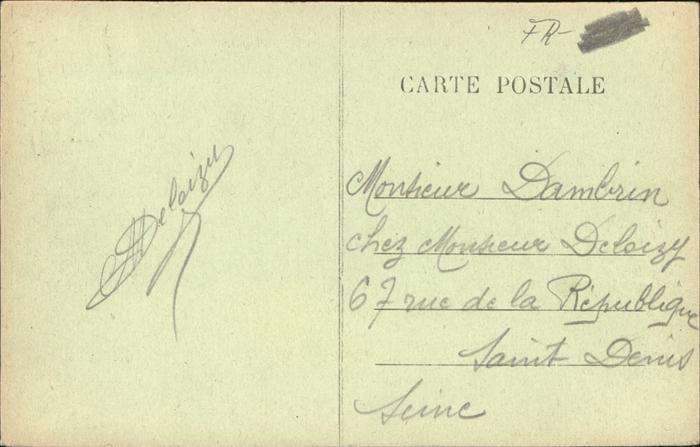 FR-
CARTE POSTALE
Deloizy
Monsieur Dambrin
chez Monsieur Deloizy
67 rue de la République
Saint Denis
Seine